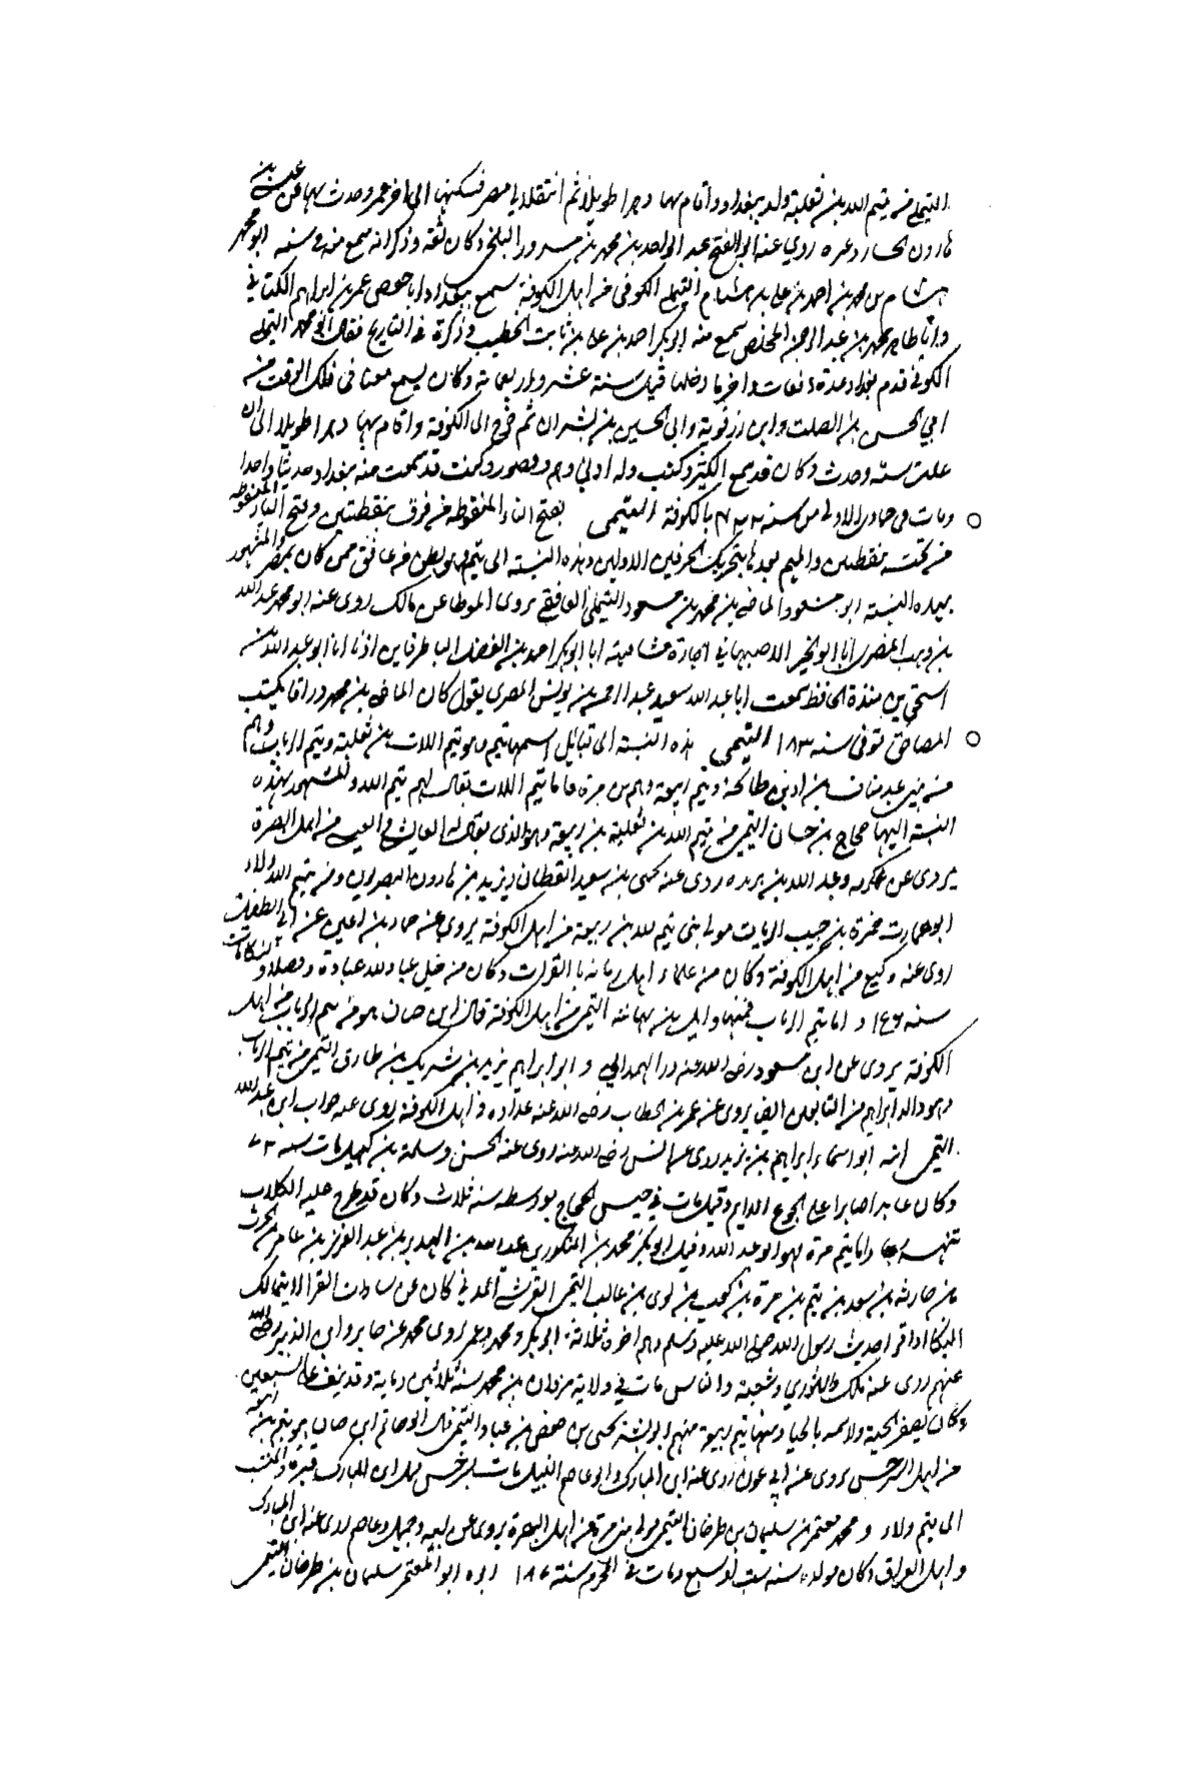 التيملي من تيم الله بن ثعلبة ولد ببغداد واقام بها دهرا طويلا ثم انتقل الى مصر فسكنها الى اخر عمره وحدث بها عن
هارون روى عنه ابو الفتح عبد الواحد بن محمد بن مسرور البلخي وكان ثقة وذكر انه سمع منه في سنه ابو محمد
هشام بن محمد بن احمد بن علي بن هشام التيملي الكوفي من اهل الكوفة سمع ببغداد ابا حفص عمر بن ابراهيم الكتاني
وابا طاهر محمد بن عبد الرحمن المخلص سمع منه ابو بكر احمد بن علي بن ثابت الخطيب وذكره في التاريخ فقال ابو محمد التيملي
الكوفي قدم بغداد عدة دفعات واخر ما دخلها قبل سنة عشر واربعماية وكان يسمع معنا في ذلك الوقت من
ابي الحسن بن الصلت وابن رزقوية وابي الحسين بن بشران ثم خرج الى الكوفة واقام بها دهرا طويلا الى ان
علت سنه وحدث وكان قد سمع الكثير وكتب وله ادنى وهم وقصور وكنت قد سمعت منه ببغداد حديثا واحدا
ومات في جمادى الاولى من سنه بالكوفة التيمي بفتح التاء المنقوطة من فوق بنقطتين وفتح الياء المنقوطة
من تحت بنقطتين والميم بعدها بتحريك الحرفين الاولين وهذه النسبة الى تيم وهو بطن من غافق ممن كان بمصر والمشهور
بهذه النسبة ابو مسعود الماضي بن محمد بن مسعود التيملي الغافقي يروى الموطا عن مالك روى عنه ابو محمد عبد الله
بن وهب المصرى انا ابو الخير الاصبهاني اجازة مشافهة انا ابو بكر احمد بن الفضل الباطرقاني اذنا انا ابو عبد الله بن
اسحق بن مندة الحافظ سمعت ابا عبد الله سعيد عبد الرحمن بن يونس المصرى يقول كان الماضي بن محمد وراقا يكتب
المصاحف توفي سنه ١٨٣ التيمى هذه النسبة الى قبائل اسمها تيم وهو تيم اللات بن ثعلبة وتيم الرباب وهم
من بني عبد مناف بن اد بن طابخة وتيم ربيعة وهم بن مرة فاما تيم اللات يقال لهم تيم الله والمشهور بهذه
النسبة اليها حجاج بن حسان التيمي من تيم الله بن ثعلبة بن ربيعة وهو الذى يقال له العايشي والعيشي من اهل البصرة
يروى عن عكرمه وعبد الله بن بريده روى عنه يحيى بن سعيد القطان ويزيد بن هارون البصريون ومن تيم الله ولاء
ابو عمارة حمزة بن حبيب الزيات مولى بنى تيم الله بن ربيعة من اهل الكوفة يروى عن حماد بن اعين عن ابي الطفيل
روى عنه وكيع من اهل الكوفة وكان من علماء اهل زمانه بالقرات وكان من خيار عباد الله عبادة وفضلا و
سنه ١٤٦ واما تيم الرباب فمنها وايل بن مهانة التيمي من اهل الكوفة قال ابن حبان هو من تيم الرباب من اهل
الكوفة يروى عن ابن مسعود رضي الله عنه وابو ابراهيم يزيد بن شريك بن طارق التيمي من تيم الرباب
وهو والد ابراهيم من التابعين ايضا يروى عن عمر بن الخطاب رضي الله عنه عداده في اهل الكوفة روى عنه جواب بن عبد الله
التيمي ابنه ابو اسماء ابراهيم بن يزيد يروى عن انس رضي الله عنه روى عنه الحسن وسلمة بن كهيل مات سنه
وكان عابدا صابرا على الجوع الدايم وقيل مات في حبس الحجاج بواسط سنه ثلاث وكان قد طرح عليه الكلاب
تنهسه واما تيم مرة فهو ابو عبد الله وقيل ابو بكر محمد بن المنكدر بن عبد الله بن الهدير بن عبد العزيز بن عامر بن الحرث
بن حارثه بن سعد بن تيم بن مرة بن كعب بن لوى بن غالب التيمي القرشي المدني كان من سادات القراء لا يتمالك
البكا اذا قرا حديث رسول الله صلى الله عليه وسلم وهم اخوة ثلاثة ابو بكر ومحمد وعمر يروى محمد عن جابر وابن الزبير رضي الله
عنهم روى عنه مالك والثوري وشعبة والناس مات في ولاية مروان بن محمد سنة ثلاثين وماية وقد نيف على السبعين
وكان يصفر لحيته وراسه بالحنا ومنها تيم ربيعة منهم ابو بشر يحيى بن حفص بن عباد التيمي قال ابو حاتم ابن حبان هو تيم بن ربيعة
من اهل سرخس يروى عن ابي عون روى عنه ابن المبارك وابو عاصم النبيل مات بسرخس قبل ابن المبارك وقبره والمنتسب
الى تيم ولاء ابو محمد معتمر بن سليمان بن طرخان التيمي مولى بني مرة من اهل البصرة يروى عن ابيه وحميد وعاصم روى عنه ابن المبارك
واهل العراق وكان مولده سنه ست او سبع ومات في المحرم سنة ١٨٧ ابوه ابو المعتمر سليمان بن طرخان التيمي